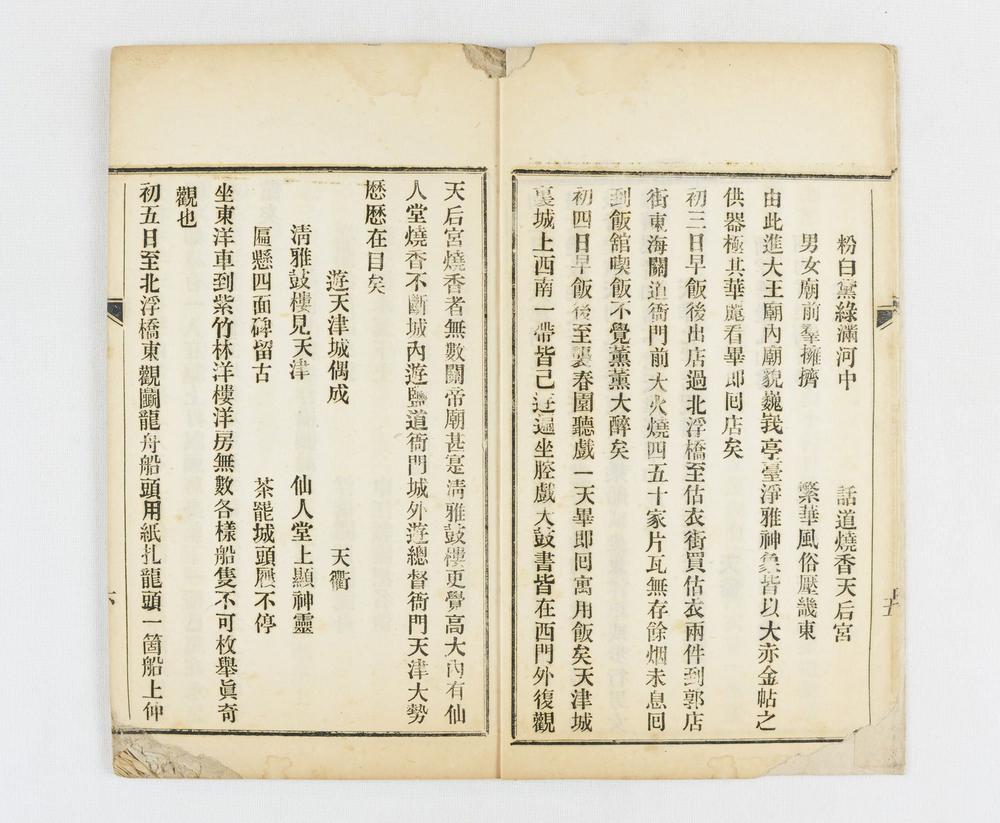 粉白黛綠滿河中　話道燒香天后宮
男女廟前羣擁擠　繁華風俗壓畿東
由此進大王廟內廟貌巍峩亭臺淨雅神象皆以大赤金帖之
供器極其華麗看畢即囘店矣
初三日早飯後出店過北浮橋至估衣街買估衣兩件到郭店
街東海關道衙門前大火燒四五十家片瓦無存餘烟未息囘
到飯舘喫飯不覺薰薰大醉矣
初四日早飯後至襲春園聽戲一天畢即囘寓用飯矣天津城
裏城上西南一帶皆己逛遍坐腔戲大鼓書皆在西門外復觀
天后宮燒香者無數關帝廟甚寔清雅鼓樓更覺高大內有仙
人堂燒香不斷城內遊鹽道衙門城外遊總督衙門天津大勢
歷歷在目矣
遊天津城偶成　天衢
清雅鼓樓見天津　仙人堂上顯神靈
匾懸四面碑留古　茶罷城頭屐不停
坐東洋車到紫竹林洋樓洋房無數各樣船隻不可枚舉眞奇
觀也
初五日至北浮橋東觀鬭龍舟船頭用紙扎龍頭一箇船上伸